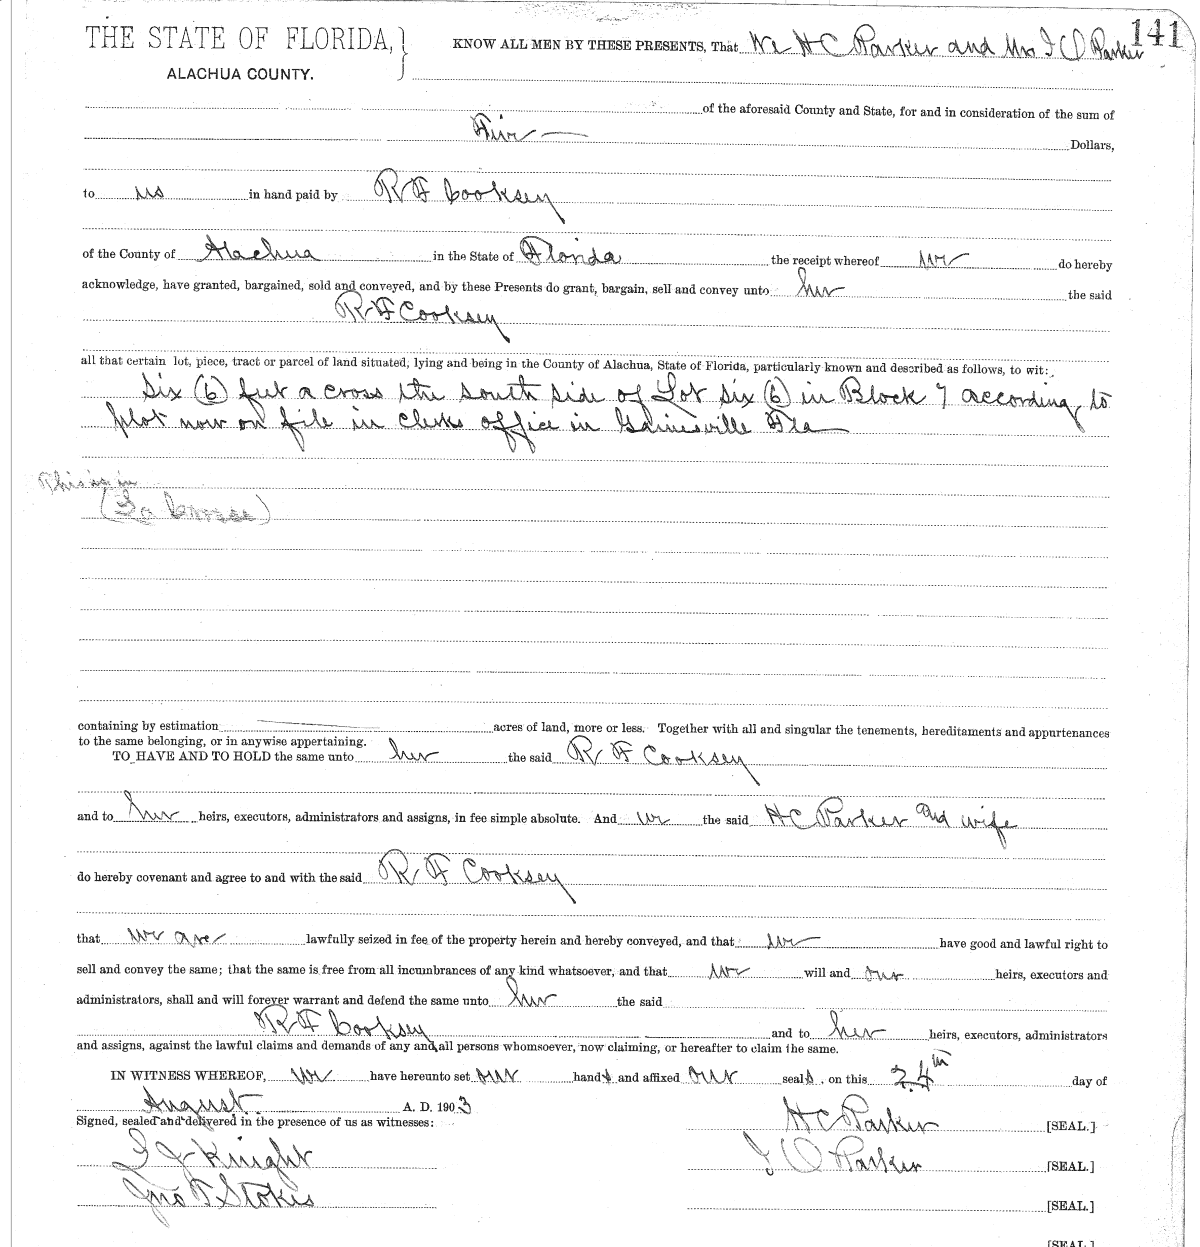 141
THE STATE OF FLORIDA,
ALACHUA COUNTY.
KNOW ALL MEN BY THESE PRESENTS, That We H C Parker and Mrs I O Parker
of the aforesaid County and State, for and in consideration of the sum of
Five
Dollars,
to us in hand paid by R F Cooksey
of the County of Alachua in the State of Florida the receipt whereof we do hereby
acknowledge, have granted, bargained, sold and conveyed, and by these Presents do grant, bargain, sell and convey unto her the said
R F Cooksey
all that certain lot, piece, tract or parcel of land situated, lying and being in the County of Alachua, State of Florida, particularly known and described as follows, to wit:
Six (6) feet across the south side of Lot Six (6) in Block 7 according to
plot now on file in clerks office in Gainesville Fla
This is in
(La Crosse)
containing by estimation acres of land, more or less. Together with all and singular the tenements, hereditaments and appurtenances
to the same belonging, or in anywise appertaining.
TO HAVE AND TO HOLD the same unto her the said R F Cooksey
and to her heirs, executors, administrators and assigns, in fee simple absolute. And we the said H C Parker and wife
do hereby covenant and agree to and with the said R F Cooksey
that we are lawfully seized in fee of the property herein and hereby conveyed, and that we have good and lawful right to
sell and convey the same; that the same is free from all incumbrances of any kind whatsoever, and that we will and our heirs, executors and
administrators, shall and will forever warrant and defend the same unto her the said
R F Cooksey and to her heirs, executors, administrators
and assigns, against the lawful claims and demands of any and all persons whomsoever, now claiming, or hereafter to claim the same.
IN WITNESS WHEREOF, We have hereunto set our hands and affixed our seals on this 24th day of
August A. D. 1903
Signed, sealed and delivered in the presence of us as witnesses:
H C Parker [SEAL.]
I O Parker [SEAL.]
Knight
Jno T Stokes
[SEAL.]
[SEAL.]